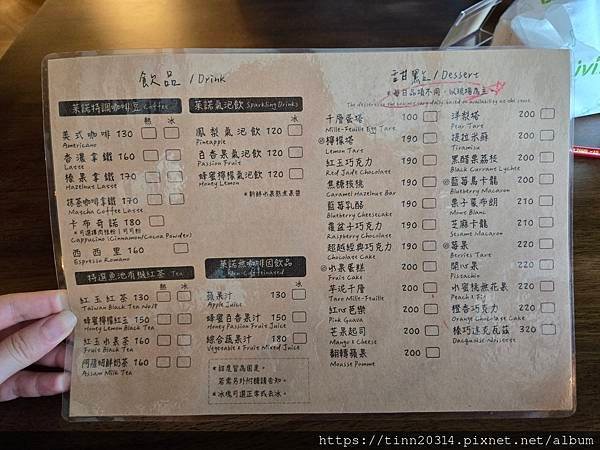 飲品 / Drink
萊諾特調咖啡豆 Coffee
熱 冰
美式咖啡 130
Americano
香濃拿鐵 160
Latte
榛果拿鐵 170
Hazelnut Latte
抹茶咖啡拿鐵 170
Matcha Coffee Latte
卡布奇諾 180
*可選擇肉桂粉 | 可可粉
Cappuccino (Cinnamon/Cocoa Powders)
西西里 160
Espresso Romano
特選魚池有機紅茶 Tea
熱 冰
紅玉紅茶 130
Taiwan Black Tea No.18
蜂蜜檸檬紅玉 150
Honey Lemon Black Tea
紅玉水果茶 160
Fruit Black Tea
阿薩姆鮮奶茶 160
Assam Milk Tea
萊諾氣泡飲 Sparkling Drinks
冰
鳳梨氣泡飲 120
Pineapple
百香果氣泡飲 120
Passion Fruit
蜂蜜檸檬氣泡飲 120
Honey Lemon
*新鮮水果熬煮果醬
萊諾無咖啡因飲品
Non-Caffeinated
冰
蘋果汁 130
Apple Juice
蜂蜜百香果汁 150
Honey Passion Fruit Juice
綜合蔬果汁 180
Vegetable & Fruit Mixed Juice
*甜度皆為固定,
若需另外附糖請告知。
*冰塊可選正常或去冰。
甜點 / Dessert
*每日品項不同,以現場為主。
The desserts vary daily, based on availability at the store
千層蛋塔 100
Mille-Feuille Egg Tart
檸檬塔 190
Lemon Tart
紅玉巧克力 190
Red Jade Chocolate
焦糖榛桃 190
Caramel Hazelnut Bar
藍莓乳酪 190
Blueberry Cheesecake
覆盆子巧克力 190
Raspberry Chocolate
超越經典巧克力 190
Chocolate Cake
水果蛋糕 200
Fruit Cake
芋泥千層 200
Taro Mille-Feuille
紅心芭樂 200
Pink Guava
芒果起司 200
Mango & Cheese
翻轉蘋果 200
Mousse Pomme
洋梨塔 200
Pear Tart
提拉米蘇 200
Tiramisu
黑醋栗荔枝 200
Black Currant Lychee
藍莓馬卡龍 200
Blueberry Macaron
栗子蒙布朗 210
Mont Blanc
芝麻卡龍 210
Sesame Macaron
莓果 210
Berries Tart
開心果 210
Pistachio
水蜜桃無花果 220
Peach & Fig
橙香巧克力 220
Orange Chocolate Cake
榛巧達克瓦茲 320
Dacquoise Noisette
https://tinn20314.pixnet.net/album